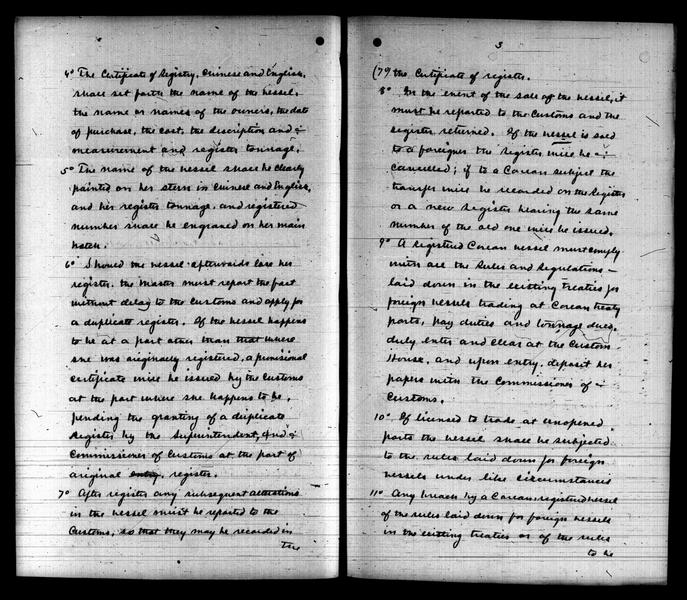 4° The Certificate of Registry, Chinese and English,
shall set forth the name of the vessel,
the name or names of the owners, the date
of purchase, the cost, the description and
measurement and register tonnage.
5° The name of the vessel shall be clearly
painted on her stern in Chinese and English,
and her register tonnage and registered
number shall be engraved on her main
hatch.
6° Should the vessel afterwards lose her
register, the Master must report the fact
without delay to the Customs and apply for
a duplicate register. If the vessel happens
to be at a port other than that where
she was originally registered, a provisional
certificate will be issued by the Customs
at the port where she happens to be,
pending the granting of a duplicate
Register by the Superintendent, and
Commissioner of Customs at the port of
original entry, register.
7° After register any subsequent alterations
in the vessel must be reported to the
Customs, so that they may be recorded in
the
3
(7°) the Certificate of register.
8° In the event of the sale of the vessel, it
must be reported to the Customs and the
register returned. If the vessel is sold
to a foreigner the register will be
cancelled; if to a Corean subject the
transfer will be recorded on the Register
or a new Register bearing the same
number of the old one will be issued.
9° A Registered Corean vessel must comply
with all the Rules and Regulations
laid down in the existing treaties for
foreign vessels trading at Corean treaty
ports, pay duties and tonnage dues,
duly enter and clear at the Custom
House, and upon entry, deposit her
papers with the Commissioner of
Customs.
10° If licensed to trade at unopened
ports the vessel shall be subjected
to the rules laid down for foreign
vessels under like circumstances
11° Any breach by a Corean registered vessel
of the rules laid down for foreign vessels
in the existing treaties or of the rules
to be